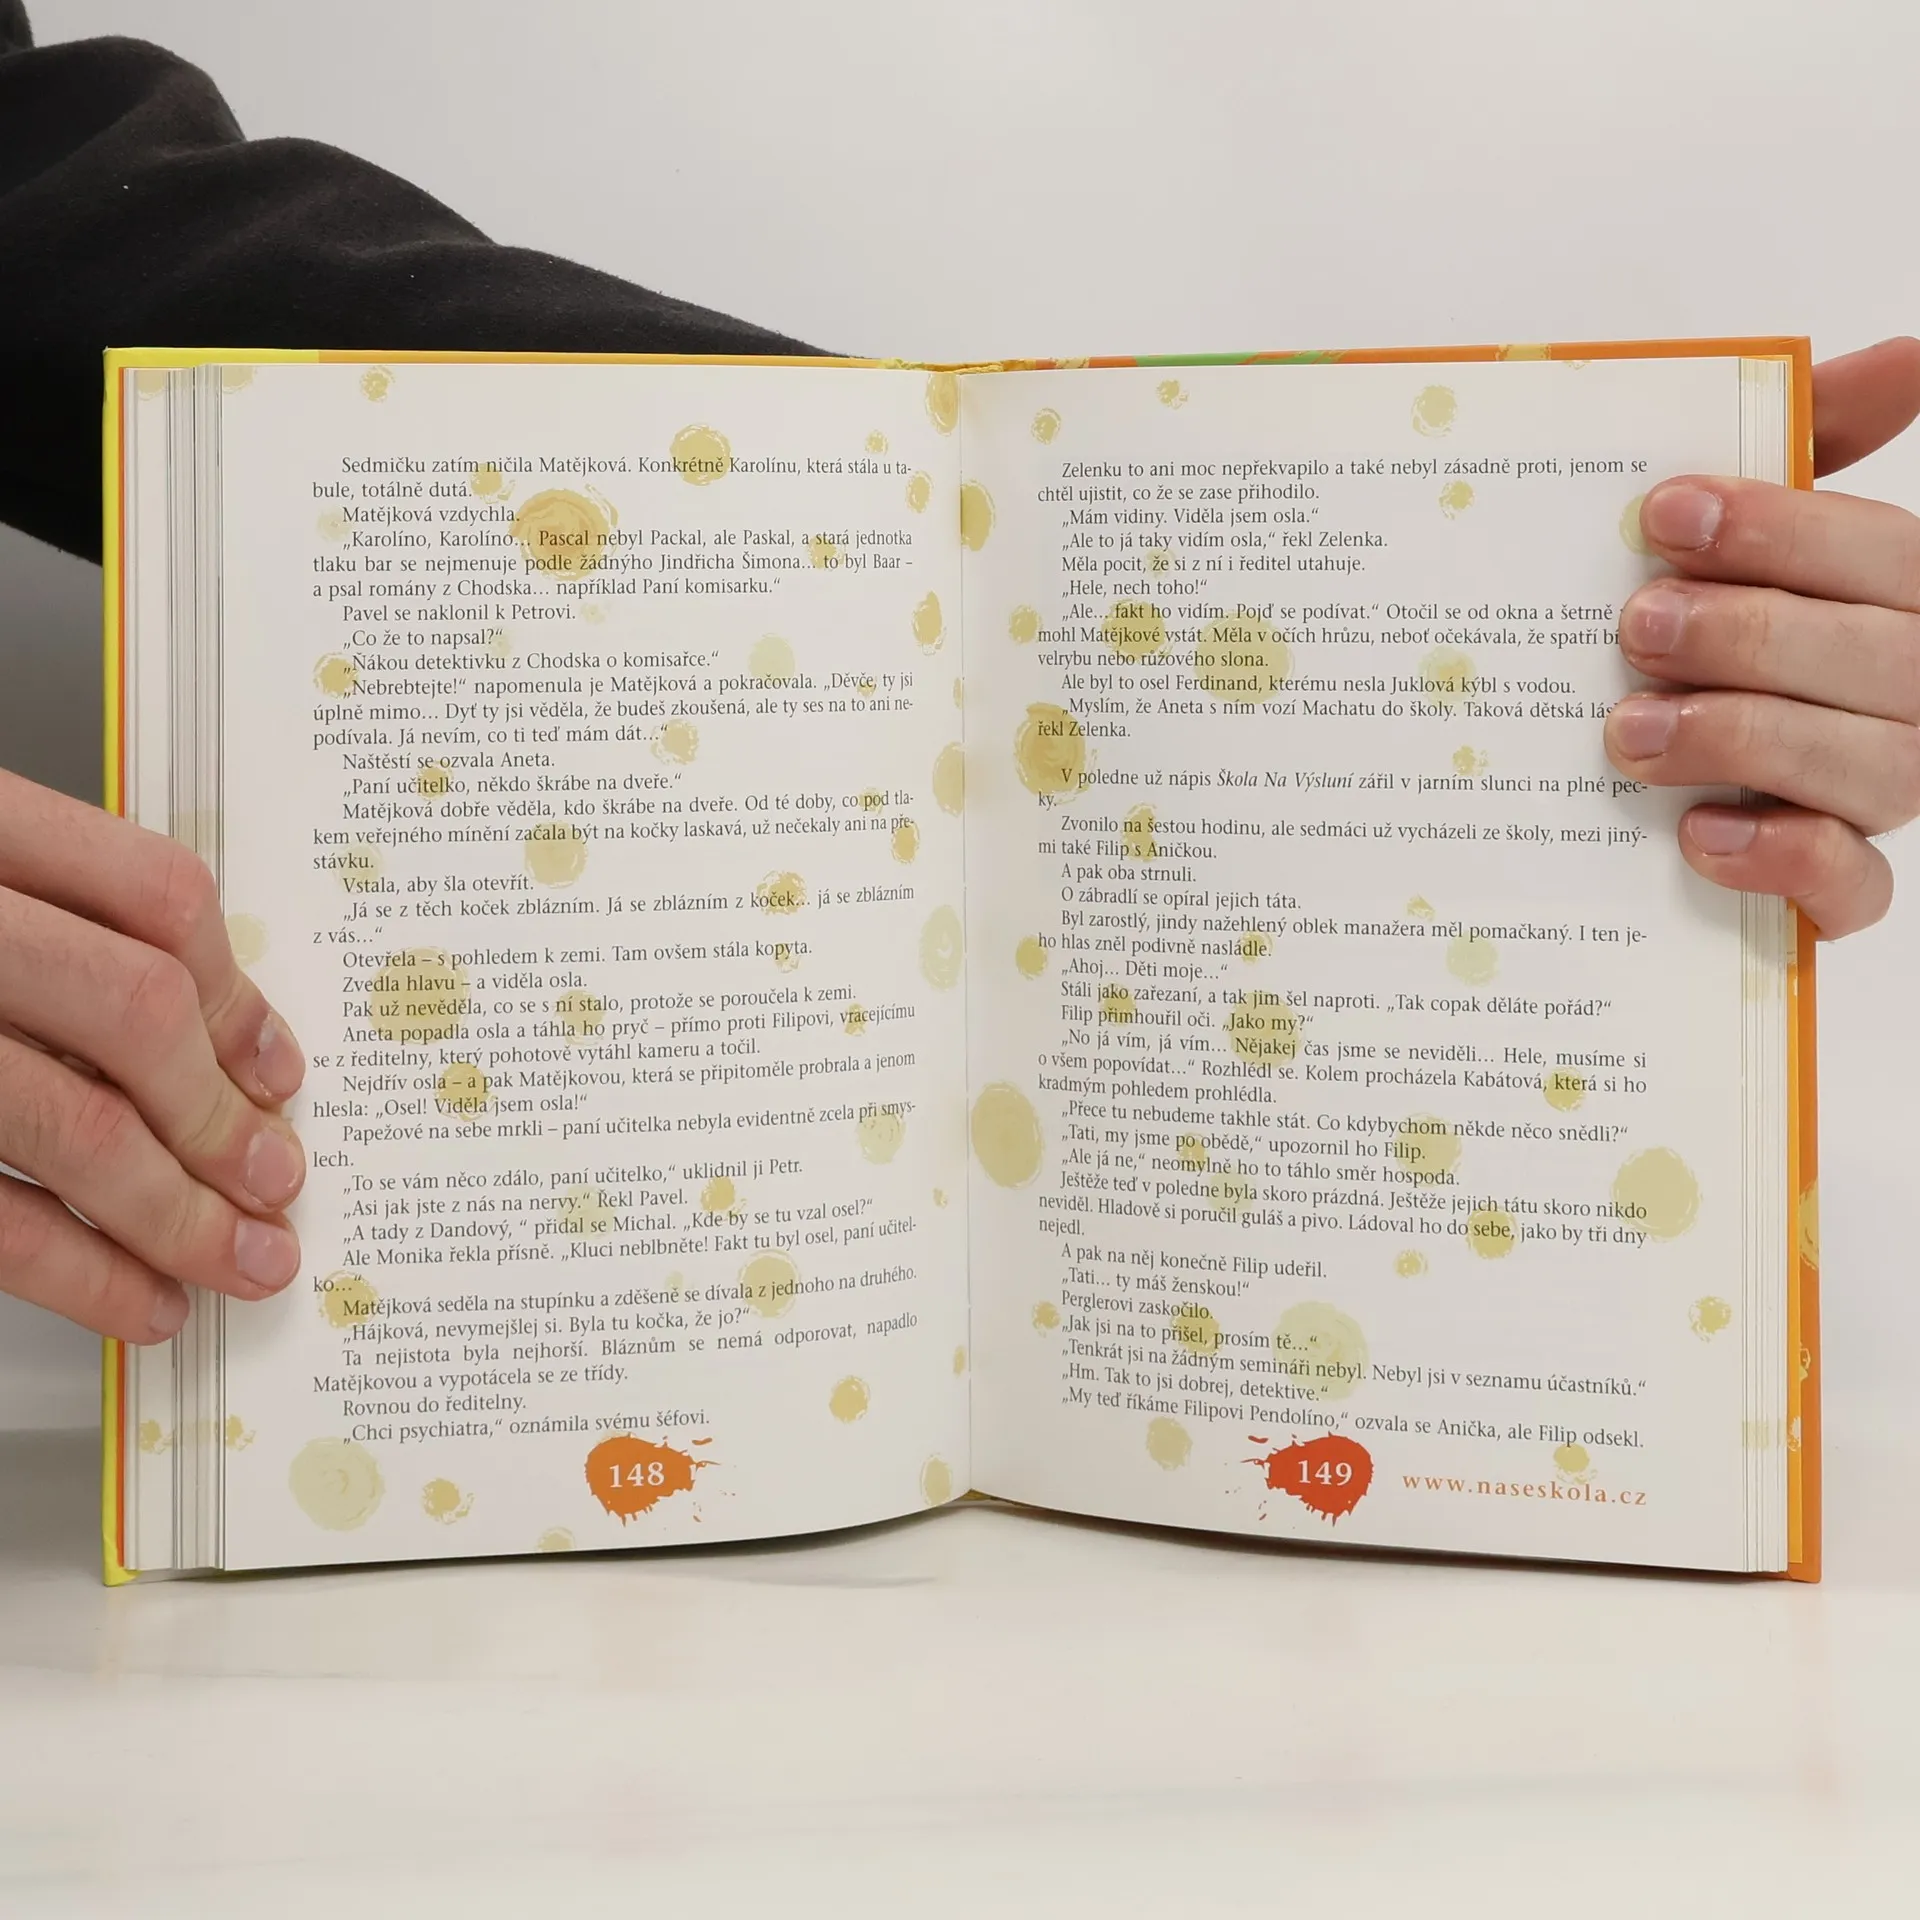 Sedmičku zatím ničila Matějková. Konkrétně Karolínu, která stála u ta-
bule, totálně dutá.
Matějková vzdychla.
„Karolíno, Karolíno... Pascal nebyl Packal, ale Paskal, a stará jednotka
tlaku bar se nejmenuje podle žádnýho Jindřicha Šimona... to byl Baar –
a psal romány z Chodska... například Paní komisarku.“
Pavel se naklonil k Petrovi.
„Co že to napsal?“
„Ňákou detektivku z Chodska o komisařce.“
„Nebrebtejte!“ napomenula je Matějková a pokračovala. „Děvče, ty jsi
úplně mimo... Dyť ty jsi věděla, že budeš zkoušená, ale ty ses na to ani ne-
podívala. Já nevím, co ti teď mám dát...“
Naštěstí se ozvala Aneta.
„Paní učitelko, někdo škrábe na dveře.“
Matějková dobře věděla, kdo škrábe na dveře. Od té doby, co pod tla-
kem veřejného mínění začala být na kočky laskavá, už nečekaly ani na pře-
stávku.
Vstala, aby šla otevřít.
„Já se z těch koček zblázním. Já se zblázním z koček... já se zblázním
z vás...“
Otevřela – s pohledem k zemi. Tam ovšem stála kopyta.
Zvedla hlavu – a viděla osla.
Pak už nevěděla, co se s ní stalo, protože se poroučela k zemi.
Aneta popadla osla a táhla ho pryč – přímo proti Filipovi, vracejícímu
se z ředitelny, který pohotově vytáhl kameru a točil.
Nejdřív osla – a pak Matějkovou, která se připitoměle probrala a jenom
hlesla: „Osel! Viděla jsem osla!“
Papežové na sebe mrkli – paní učitelka nebyla evidentně zcela při smys-
lech.
„To se vám něco zdálo, paní učitelko,“ uklidnil ji Petr.
„Asi jak jste z nás na nervy.“ Řekl Pavel.
„A tady z Dandový, “ přidal se Michal. „Kde by se tu vzal osel?“
Ale Monika řekla přísně. „Kluci neblbněte! Fakt tu byl osel, paní učitel-
ko...“
Matějková seděla na stupínku a zděšeně se dívala z jednoho na druhého.
„Hájková, nevymejšlej si. Byla tu kočka, že jo?“
Ta nejistota byla nejhorší. Bláznům se nemá odporovat, napadlo
Matějkovou a vypotácela se ze třídy.
Rovnou do ředitelny.
„Chci psychiatra,“ oznámila svému šéfovi.
148
Zelenku to ani moc nepřekvapilo a také nebyl zásadně proti, jenom se
chtěl ujistit, co že se zase přihodilo.
„Mám vidiny. Viděla jsem osla.“
„Ale to já taky vidím osla,“ řekl Zelenka.
Měla pocit, že si z ní i ředitel utahuje.
„Hele, nech toho!“
„Ale... fakt ho vidím. Pojď se podívat.“ Otočil se od okna a šetrně
mohl Matějkové vstát. Měla v očích hrůzu, neboť očekávala, že spatří
velrybu nebo růžového slona.
Ale byl to osel Ferdinand, kterému nesla Juklová kýbl s vodou.
„Myslím, že Aneta s ním vozí Machatu do školy. Taková dětská
řekl Zelenka.
V poledne už nápis Škola Na Výsluní zářil v jarním slunci na plné pec-
ky.
Zvonilo na šestou hodinu, ale sedmáci už vycházeli ze školy, mezi jiný-
mi také Filip s Aničkou.
A pak oba strnuli.
O zábradlí se opíral jejich táta.
Byl zarostlý, jindy nažehlený oblek manažera měl pomačkaný. I ten je-
ho hlas zněl podivně nasládle.
„Ahoj... Děti moje...“
Stáli jako zařezaní, a tak jim šel naproti. „Tak copak děláte pořád?“
Filip přimhouřil oči. „Jako my?“
„No já vím, já vím... Nějakej čas jsme se neviděli... Hele, musíme si
o všem popovídat...“ Rozhlédl se. Kolem procházela Kabátová, která si ho
kradmým pohledem prohlédla.
„Přece tu nebudeme takhle stát. Co kdybychom někde něco snědli?“
„Tati, my jsme po obědě,“ upozornil ho Filip.
„Ale já ne,“ neomylně ho to táhlo směr hospoda.
Ještěže teď v poledne byla skoro prázdná. Ještěže jejich tátu skoro nikdo
neviděl. Hladově si poručil guláš a pivo. Ládoval ho do sebe, jako by tři dny
nejedl.
A pak na něj konečně Filip udeřil.
„Tati... ty máš ženskou!“
Perglerovi zaskočilo.
„Jak jsi na to přišel, prosím tě...“
„Tenkrát jsi na žádným semináři nebyl. Nebyl jsi v seznamu účastníků.“
„Hm. Tak to jsi dobrej, detektive.“
„My teď říkáme Filipovi Pendolíno,“ ozvala se Anička, ale Filip odsekl.
149
www.naseskola.cz